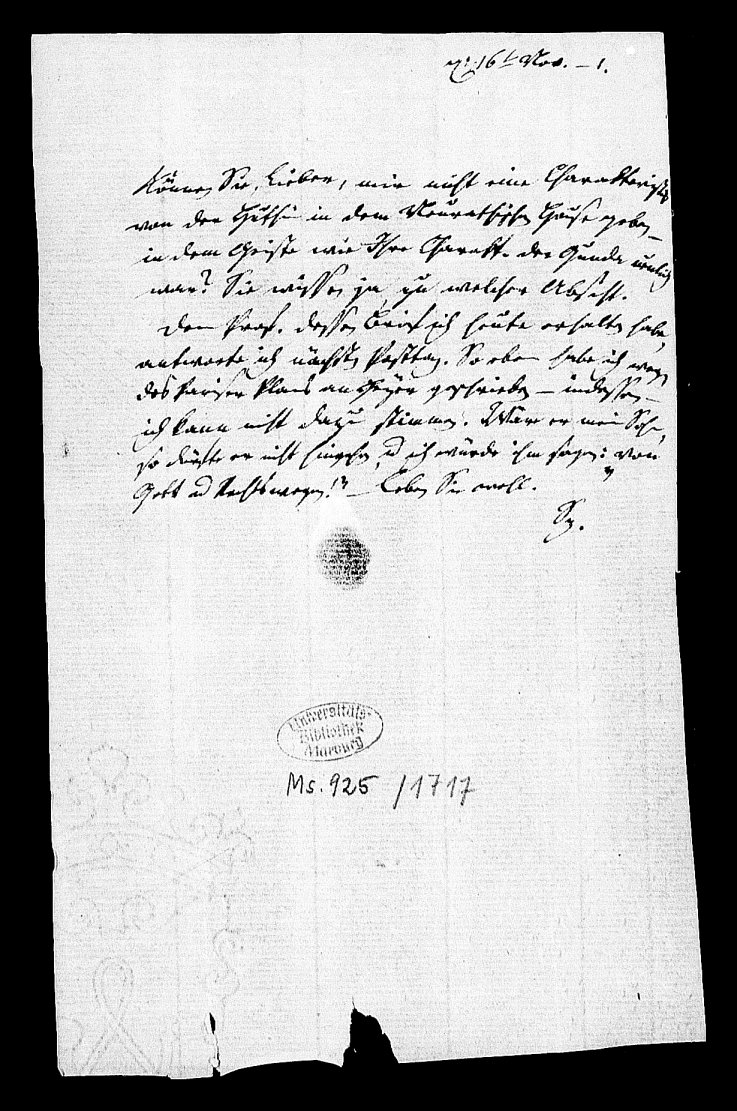 16t Nov. – 1.
Können Sie, Lieber, mir nicht eine Charakteristik
von der in dem Neurathschen Hause geben –
in dem Geiste wie Ihre Charakt. der Gunda neulich
war? Sie wissen ja zu welcher Absicht.
Dem Prof. dessen Brief ich heute erhalten habe,
antworte ich nächsten Posttag. So eben habe ich wegen
des Pariser Plans an geschrieben – indessen –
ich kann nicht dazu stimmen. Wäre er mein Sohn,
so dürfte er nicht hingehen, ud ich würde ihm sagen: „von
Gott ud Rechtswegen!“ – Leben Sie wohl.
Sy.
Universitäts-
Bibliothek
Marburg
Ms. 925 /1717